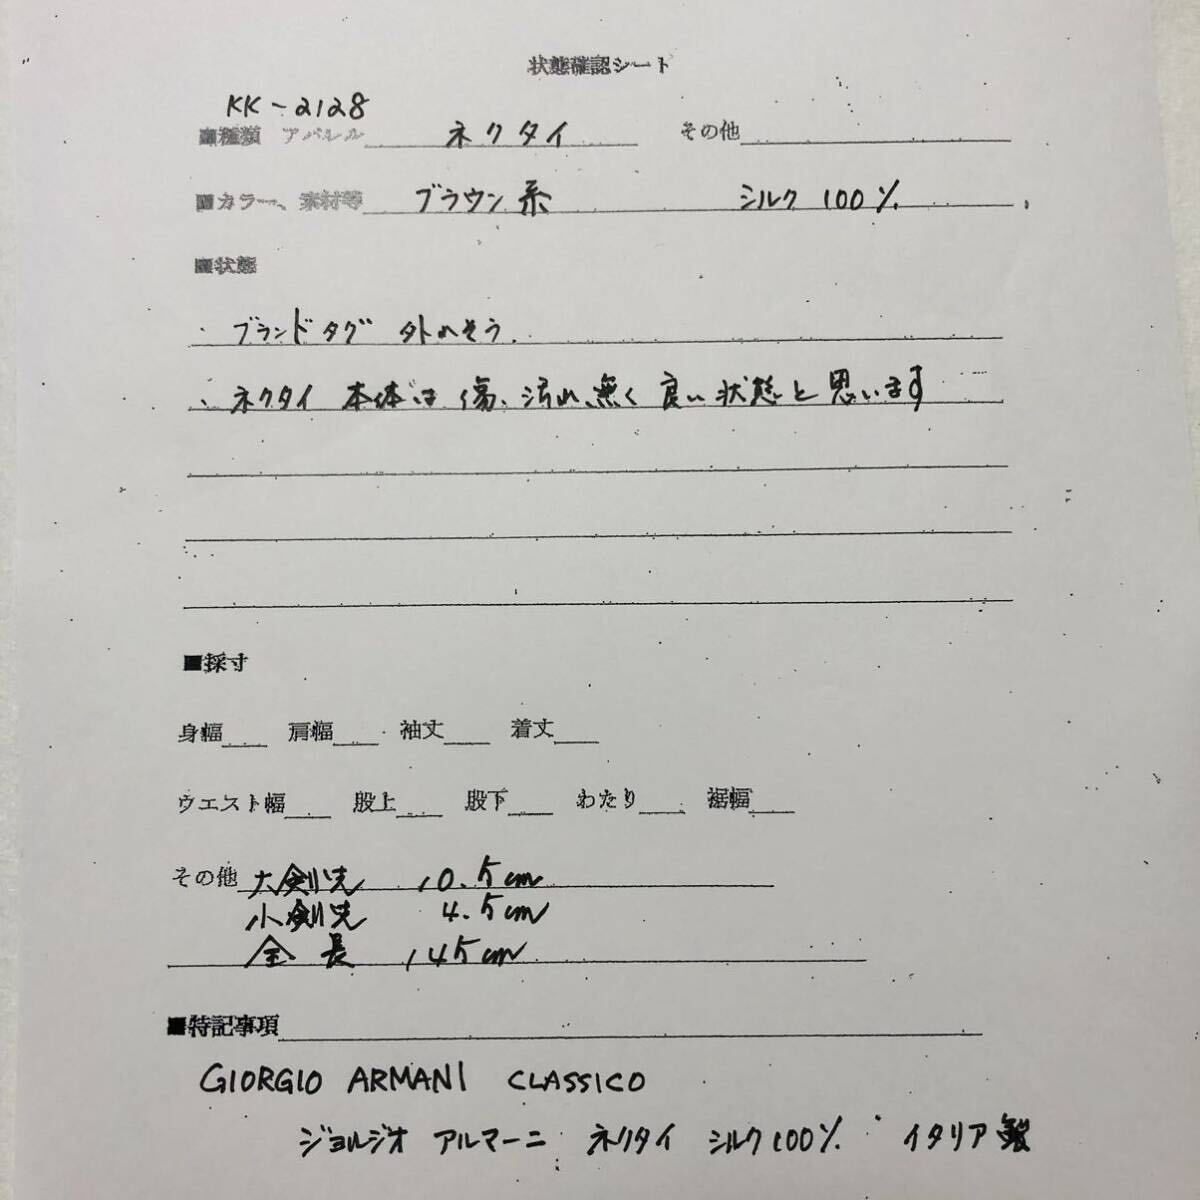 状態確認シート
KK-2128
■種類 アパレル ネクタイ その他
■カラー、素材等 ブラウン系 シルク 100%
■状態
・ブランドタグ 外れそう.
・ネクタイ 本体は 傷、汚れ、無く 良い状態と思います
■採寸
身幅 肩幅 袖丈 着丈
ウエスト幅 股上 股下 わたり 裾幅
その他 大剣先 10.5cm
小剣先 4.5cm
全長 145cm
■特記事項
GIORGIO ARMANI CLASSICO
ジョルジオ アルマーニ ネクタイ シルク100% イタリア製